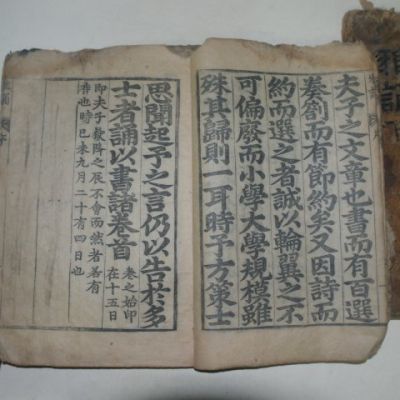 夫子之文章也書而有百選
奏劄而有節約矣又因詩而
約而選之者誠以輪翼之不
可偏廢而小學大學規模雖
殊其歸則一耳時予方策士
思聞起予之言仍以告於多
士者誦以書諸卷首
卷之始印
在十五日
即夫子降之辰不會而然者若有
待也時己未九月二十有四日也
雅誦 序